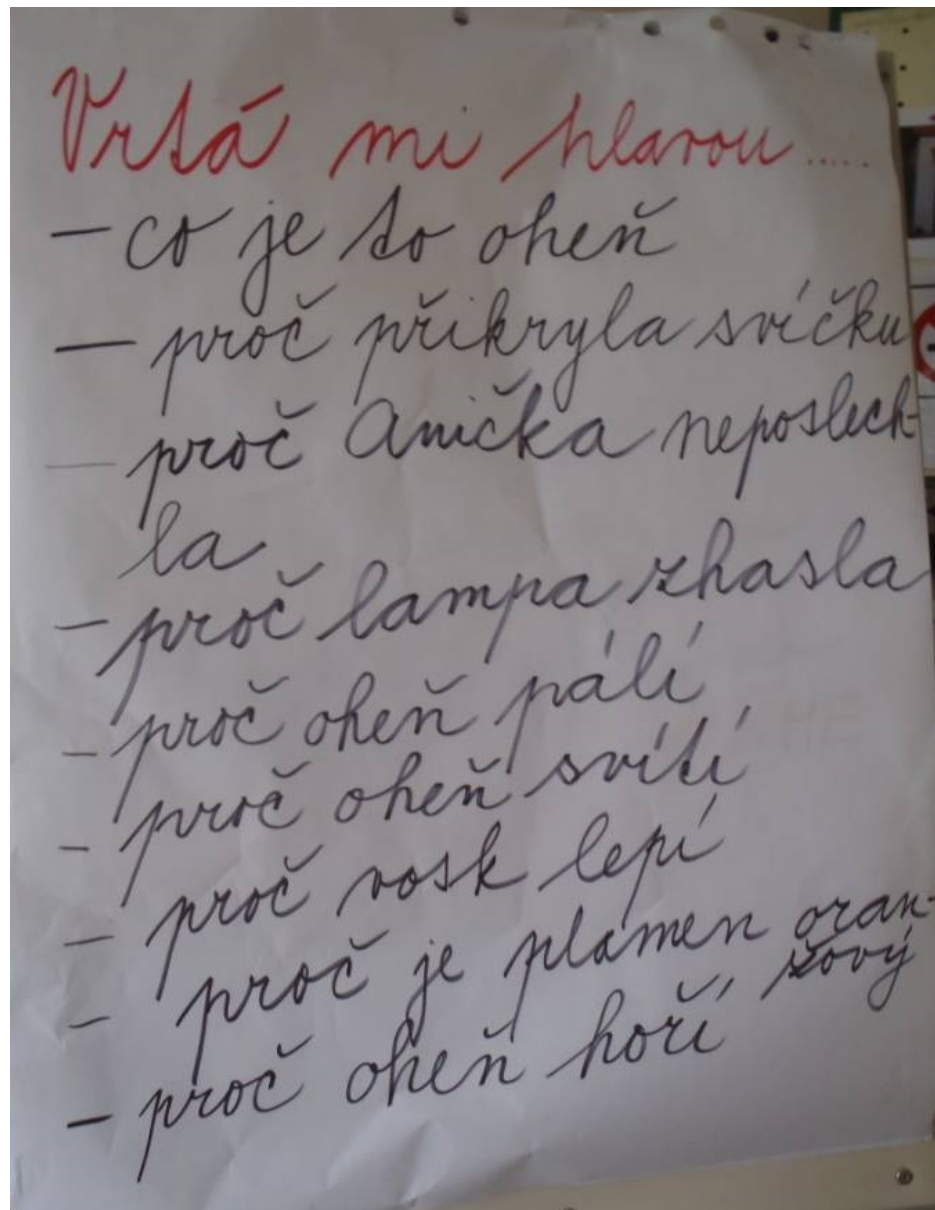 Vrtá mi hlavou.....
– co je to oheň
– proč přikryla svíčku
– proč Anička neposlech-
la
– proč lampa zhasla
– proč oheň pálí
– proč oheň svítí
– proč vosk lepí
– proč je plamen oran-
žový
– proč oheň hoří